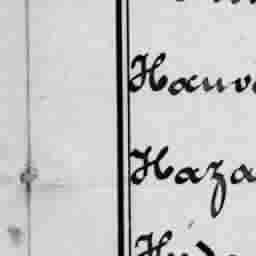 Hauv
Haza